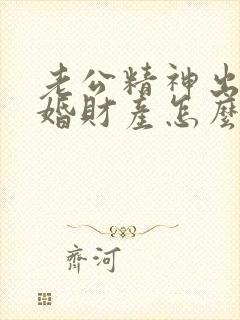 老公精神出
婚財產怎麼
齊河